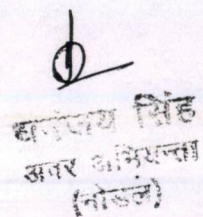 सिंह
अवर अभियन्ता
(नोडल)